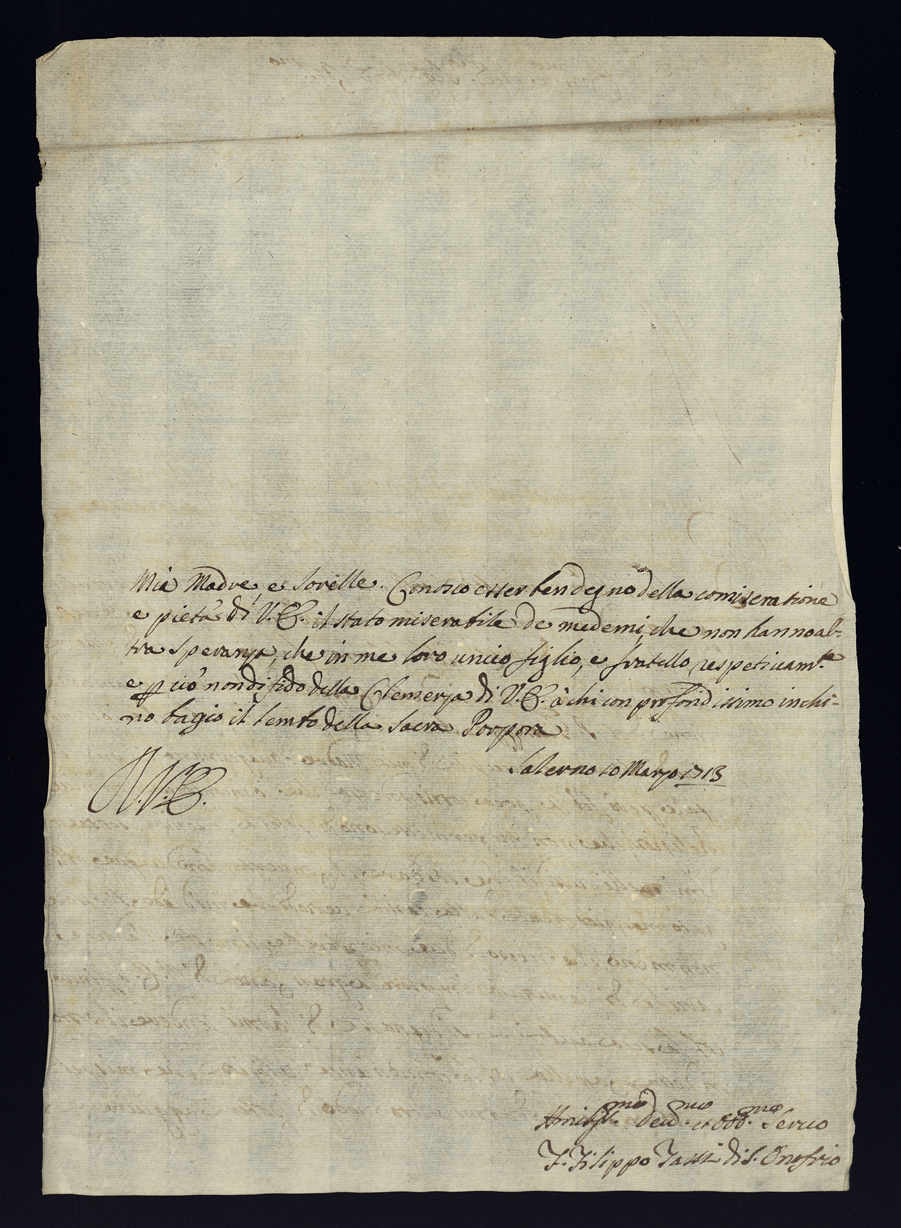 mia Madre e Sorelle. Conosco esser ben degno della comiseratione
e pietà di V. E. il stato miserabile de medemi, che non hanno al-
tra speranza, che in me loro unico figlio, e fratello, respetivam.te
e p ciò non difido della Clemenza di V. E. à chi con profondissimo inchi-
no bagio il lembo della Sacra Porpora
Salerno 10 Marzo 1713
V. E.
Humiliss.mo Deu.mo et Obb.mo Seruo
F. Filippo Tassi di S. Onofrio